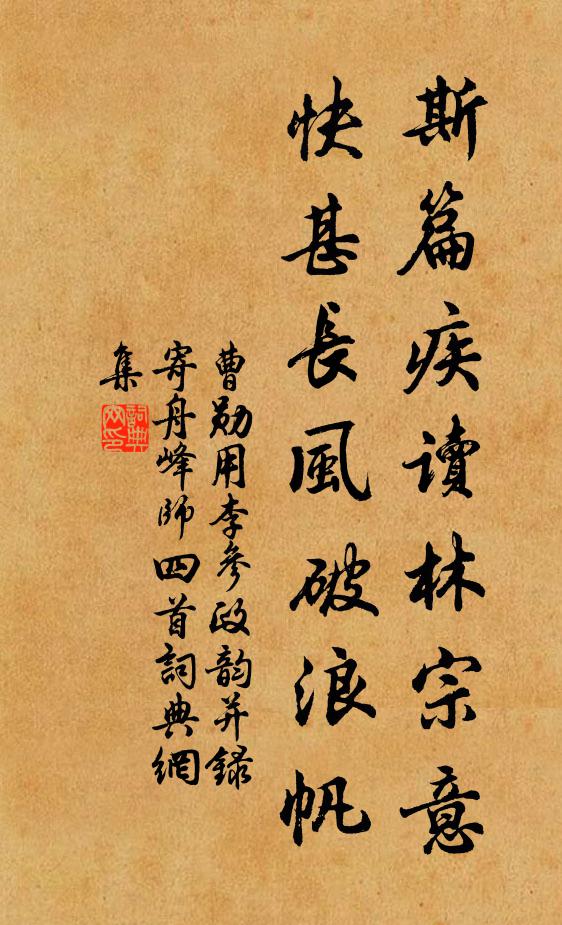 斯篇疾讀林宗意
快甚長風破浪帆
曹勛用李參政韵并録
寄舟峰師四首詞典網
集
詞典
网印